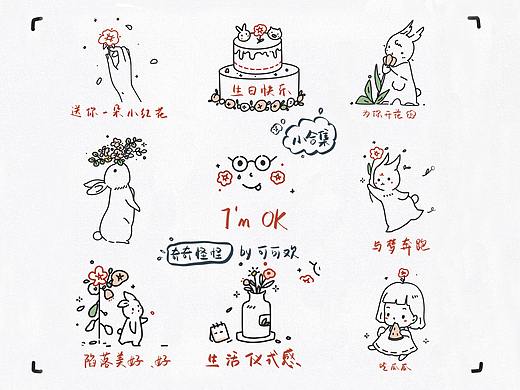 送你一朵小红花
生日快乐
为你开花田
小合集
I'm OK
与梦奔跑
奇奇怪怪 by 可可欢
陷落美好、好
生活仪式感
吃瓜瓜